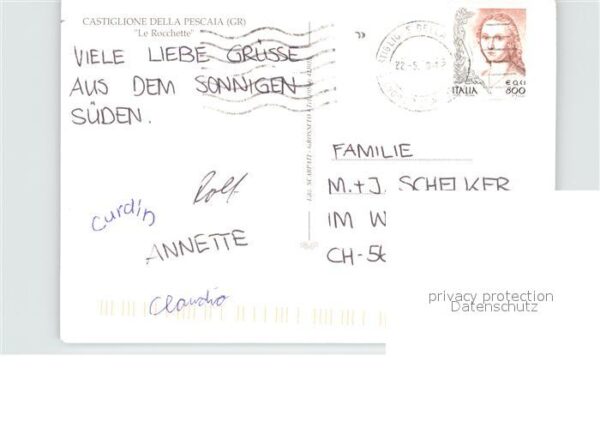 CASTIGLIONE DELLA PESCAIA (GR)
"Le Rocchette"
VIELE LIEBE GRÜSSE
AUS DEM SONNIGEN
SÜDEN.
Rolf
Curdin
ANNETTE
Claudio
FAMILIE
M.+J. SCHELKER
IM W
CH-56
ITALIA
€ 0,41
800
privacy protection
Datenschutz